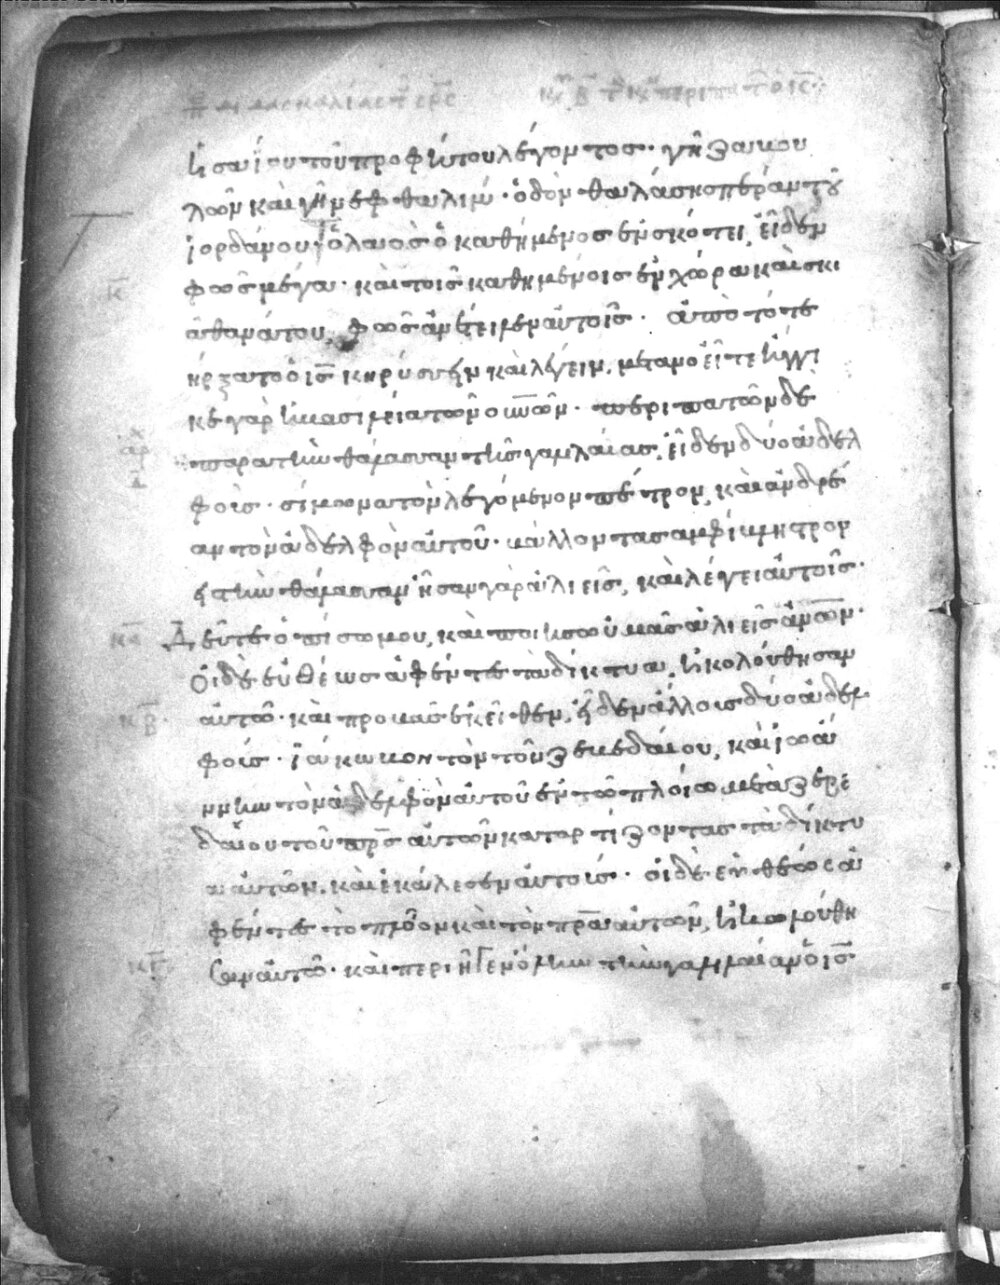 ἠσαΐου τοῦ προφήτου λέγοντος· γῆ ζαβου
λῶν καὶ γῆ νεφθαλίμ· ὁδὸν θαλάσσης πέραν τοῦ
ἰορδάνου ὁ λαὸς ὁ καθήμενος ἐν σκότει, εἶδεν
φῶς μέγα· καὶ τοῖς καθημένοις ἐν χώρα καὶ σκι
ᾶ θανάτου, φῶς ἀνέτειλεν αὐτοῖς· ἀπὸ τότε
ἤρξατο ὁ ις κηρύσσειν καὶ λέγειν, μετανοεῖτε ἤγγι
κε γὰρ ἡ βασιλεία τῶν οὐνῶν· περιπατῶν δὲ
παρὰ τὴν θάλασσαν τῆς γαλιλαίας, εἶδεν δύο ἀδελ
φοὺς· σίμωνα τὸν λεγόμενον πέτρον, καὶ ἀνδρέ
αν τὸν ἀδελφὸν αὐτοῦ· βάλλοντας ἀμφίβληστρον
εἰς τὴν θάλασσαν ἦσαν γὰρ ἁλιεῖς, καὶ λέγει αὐτοῖς·
κα Δεῦτε ὀπίσω μου, καὶ ποιήσω ὑμᾶς ἁλιεῖς ἀνων·
Οἱ δὲ εὐθέως ἀφέντες τὰ δίκτυα, ἠκολούθησαν
κβ αὐτῶ· καὶ προβὰς ἐκεῖθεν, εἶδεν ἄλλους δύο ἀδελ
φούς· ἰάκωβον τὸν τοῦ ζεβεδαίου, καὶ ἰωάν
νην τὸν ἀδελφὸν αὐτοῦ ἐν τῶ πλοίω μετὰ ζεβε
δαίου τοῦ πρς αὐτῶν καταρτίζοντας τὰ δίκτυ
α αὐτῶν, καὶ ἐκάλεσεν αὐτούς· οἱ δὲ εὐθέως ἀ
φέντες τὸ πλοῖον καὶ τὸν πρα αὐτῶν, ἠκολούθη
κγ σαν αὐτῶ· καὶ περιῆγεν ὅλην τὴν γαλιλαίαν ὁ ις